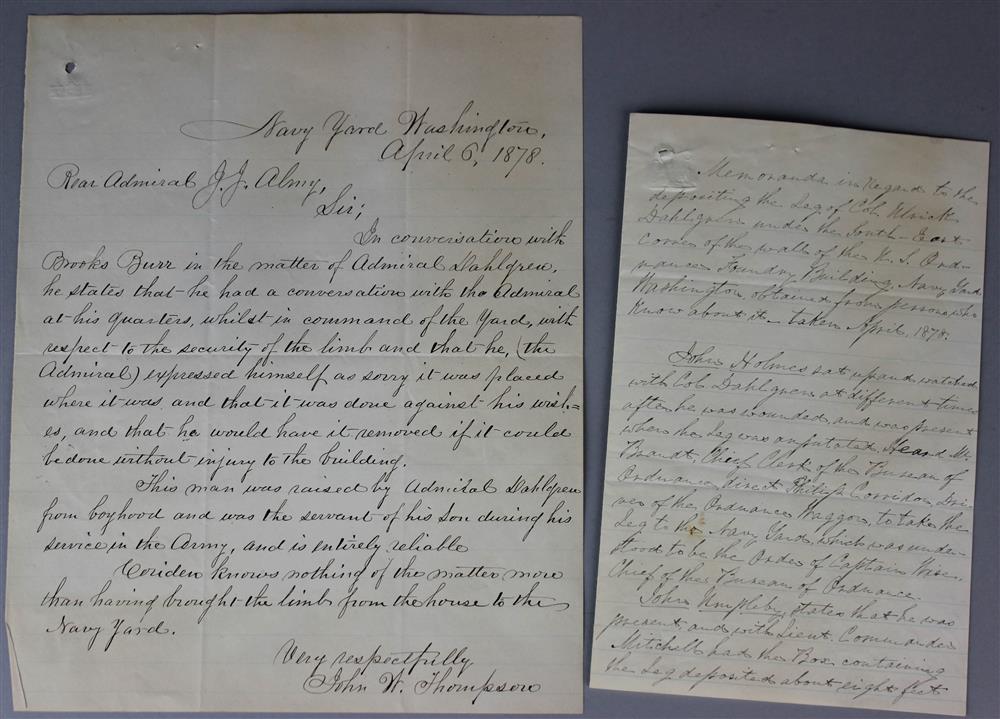 Navy Yard Washington,
April 6, 1878.
Rear Admiral J. J. Almy,
Sir;
In conversation with
Brooks Burr in the matter of Admiral Dahlgren,
he states that he had a conversation with the Admiral
at his quarters, whilst in command of the Yard, with
respect to the security of the limb and that he, (the
Admiral) expressed himself as sorry it was placed
where it was and that it was done against his wish=
es, and that he would have it removed if it could
be done without injury to the building.
This man was raised by Admiral Dahlgren
from boyhood and was the servant of his Son during his
service in the Army, and is entirely reliable
Coriden knows nothing of the matter more
than having brought the limb from the house to the
Navy Yard.
Very respectfully
John W. Thompson
Memoranda in regard to the
depositing the Leg of Col. Ulrick
Dahlgren under the South-East
corner of the wall of the U. S. Ord-
nance Foundry Building, Navy Yard
Washington, obtained from persons who
know about it - taken April, 1878.
John Holmes sat up and watched
with Col. Dahlgren at different times
after he was wounded, and was present
when the Leg was amputated. Heard Mr.
Brandt, Chief Clerk of the Bureau of
Ordnance direct Philip Corridon, Dri-
ver of the Ordnance Waggon, to take the
Leg to the Navy Yard, which was under-
stood to be the Order of Captain Wise,
Chief of the Bureau of Ordnance.
John Umpleby, states that he was
present, and with Lieut. Commander
Mitchell had the Box containing
the Leg deposited about eight feet